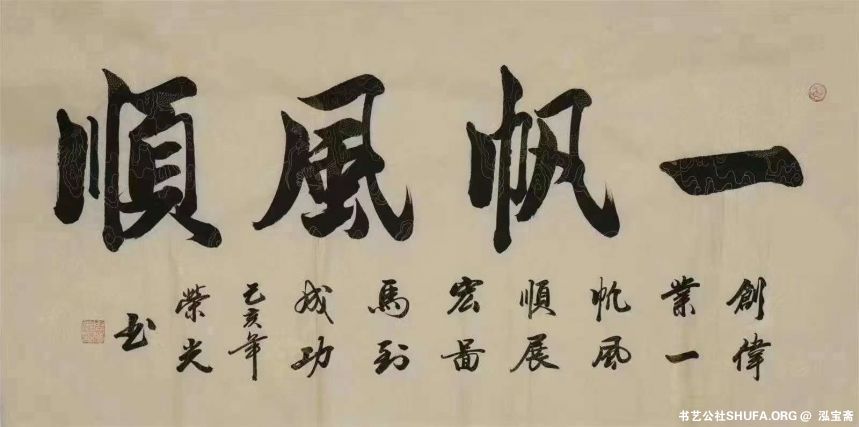 一帆風順
創偉
業一
帆風
順展
宏畵
馬到
成功
己亥年
榮光
书
书艺公社SHUFA.ORG @ 泓宝斋